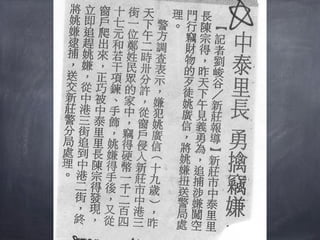 中泰里長 勇擒竊嫌
【記者劉峻谷／新莊報導】新莊市中泰里
長陳宗得，昨天下午見義勇為，追捕涉嫌闖空
門行竊財物的歹徒姚廣信，將姚嫌扭送警局處
理。
警方調查表示，嫌犯姚廣信（十九歲），昨
天下午二時卅分許，從窗戶侵入新莊市中港三
街一位鄭姓民眾的家中，竊得硬幣一千二百四
十七元和若干項鍊、手飾，姚嫌得手後，又從
窗戶爬出來，正巧被中泰里里長陳宗得發現，
立即追趕姚嫌，從中港三街追到中港二街，終
將姚嫌逮捕，送交新莊警分局處理。